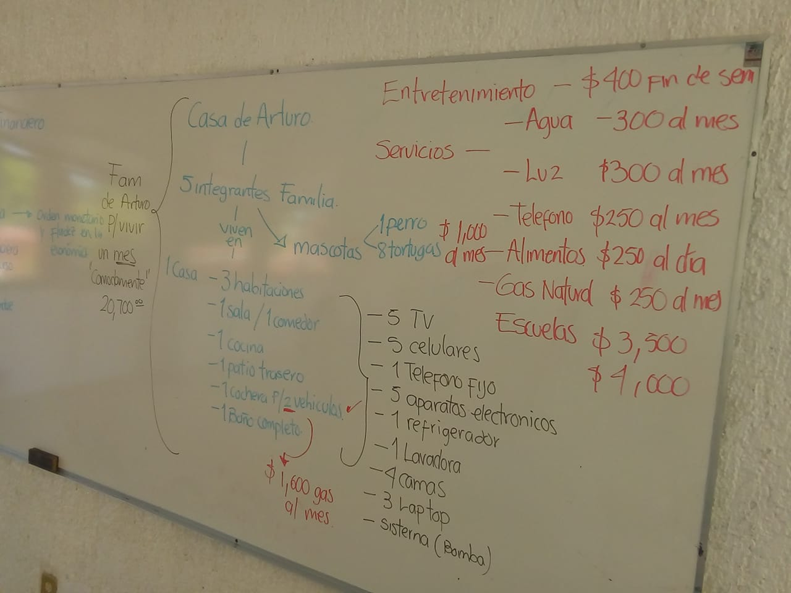 Fam
de Arturo
P/vivir
un mes
"Comodamente"
20,700.00
Casa de Arturo
5 integrantes Familia.
viven
en
mascotas
1 perro
8 tortugas
$1,000
al mes
1 Casa - 3 habitaciones
- 1 sala / 1 comedor
- 1 cocina
- 1 patio trasero
- 1 cochera P/2 vehiculos
- 1 Baño completo
$1,600 gas
al mes.
- 5 TV
- 5 celulares
- 1 Telefono Fijo
- 5 aparatos electronicos
- 1 refrigerador
- 1 Lavadora
- 4 camas
- 3 Laptop
- sisterna (Bomba)
Entretenimiento - $400 Fin de sem
Servicios -
- Agua - 300 al mes
- Luz $300 al mes
- Telefono $250 al mes
- Alimentos $250 al dia
- Gas Natural $250 al mes
Escuelas $3,500
$4,000